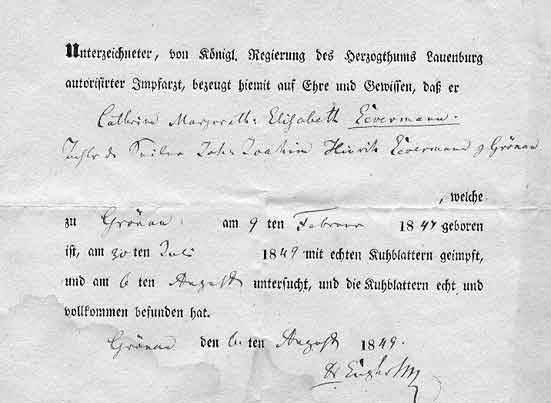 Unterzeichneter, von Königl. Regierung des Herzogthums Lauenburg
autorisirter Impfarzt, bezeugt hiemit auf Ehre und Gewissen, daß er
Cathrina Margareth Elisabeth Eckermann.
Johann Joachim Hinrich Eckermann z Grönau
, welche
zu Grönau am 9 ten Februar 1847 geboren
ist, am 30 ten Juli 1849 mit echten Kuhblattern geimpft,
und am 6 ten August untersucht, und die Kuhblattern echt und
vollkommen befunden hat.
Grönau den 6 ten August 1849.
Dr